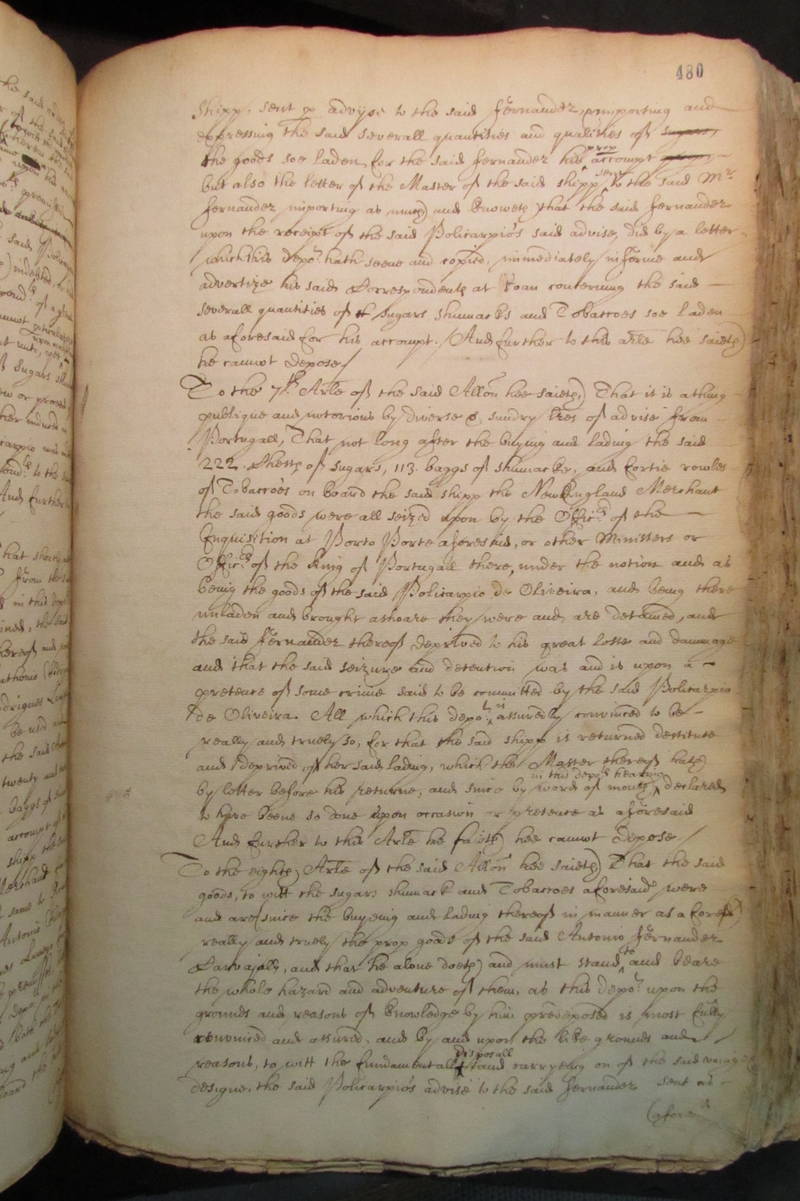 480
shipp. sent p advise to the said Fernandez, importing and
expressing the said severall quantities and qualities of
the goods soe laden for the said Fernandez his prop accompt
but also the letter of the Master of the said shipp sent to the said Mr
Fernandez importing as much and knoweth that the said Fernandez
upon the receipt of the said Policarpio's said advise, did by a letter
which this depot hath seene and copied, immediately informe and
advertize his said Correspondents at Roan concerning the said
severall quantities of sugars shumacks and Tobaccoes soe laden
as aforesaid for his accompt. And further to this arle hee saieth
he cannot depose/
To the 7th Arle of the said Allon hee saieth, That it is a thing
publique and notorious by diverse & sundry lres of advise from
Portugall, That not long after the buying and lading the said
222. Chests of sugars, 113. baggs of shumacks, and fortie rowles
of Tobaccoes on board the said shipp the New England Merchant
the said goods were all seized upon by the Officrs of the
Enquisition at Porto Porte aforesaid, or other Ministers or
Officrs of the King of Portugall there, under the notion and as
being the goods of the said Policarpio de Oliveira, and being there
unladen and brought ashoare they were and are detained, and
the said Fernandez thereof deprived to his great losse and dammage
and that the said seizure and detention was and is upon a
pretence of some crime said to be committed by the said Policarpio
de Oliveira. All which this depot is assuredly convinced to be
really and truely so, for that the said shipp is returned destitute
and deprived of her said lading, which the Master thereof hath
by letter before his returne, and since by word of mouth in this depots hearing declared
to have beene so done upon occasion or pretence as aforesaid
And further to this Arle he saith hee cannot depose/
To the eighth Arle of the said Allon hee saieth That the said
goods, to witt the sugars shumack and Tobaccoes aforesaid were
and are since the buyeing and lading thereof in manner as aforesd
really and truely the prop goods of the said Antonio Fernandez
Carvajall, and that he alone doeth and must stand to and beare
the whole hazard and adventure of them, as this depot upon the
grounds and reasons of knowledge by him predeposed is most fully
convinced and assured. and by and upon the like grounds and
reasons, to witt the fundamentall disposall and carryeing on of the said
designe, the said Policarpio's advise to the said Fernandez sent as
aforesd